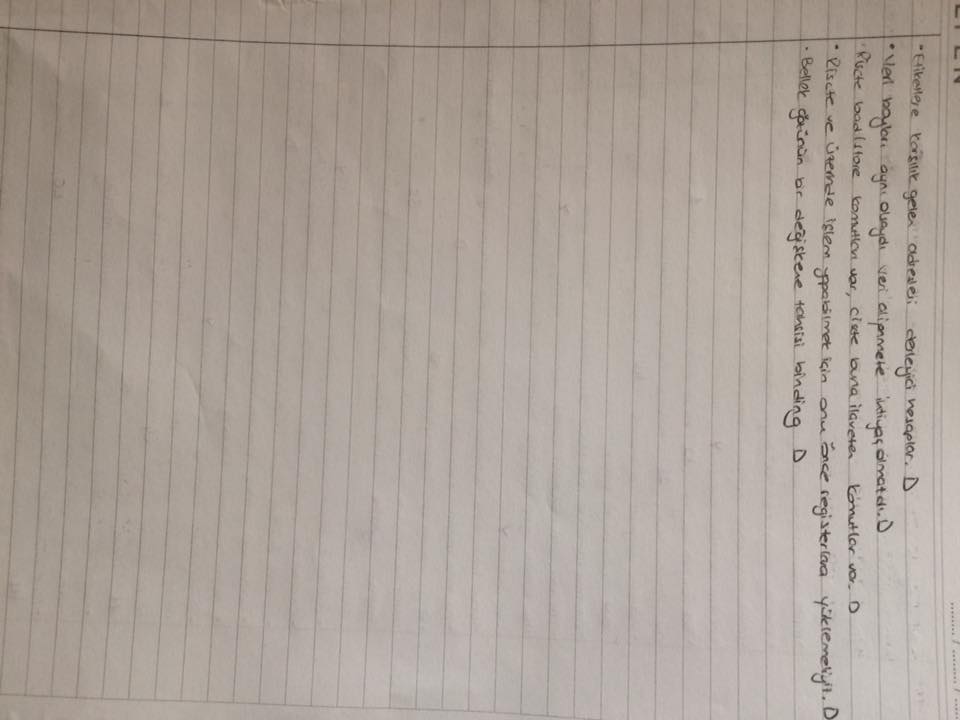 • Etiketlere karşılık gelen adresleri derleyici hesaplar. D
• Veri boyları aynı olsaydı veri alignmete ihtiyaç olmazdı. D
Riscte load/store komutları var, ciste buna ilaveten komutlar var. D
• Riscte ve üzerinde işlem yapabilmek için onu önce registerlara yüklemeliyiz. D
• Bellek gözünün bir değişkene tahsisi binding D